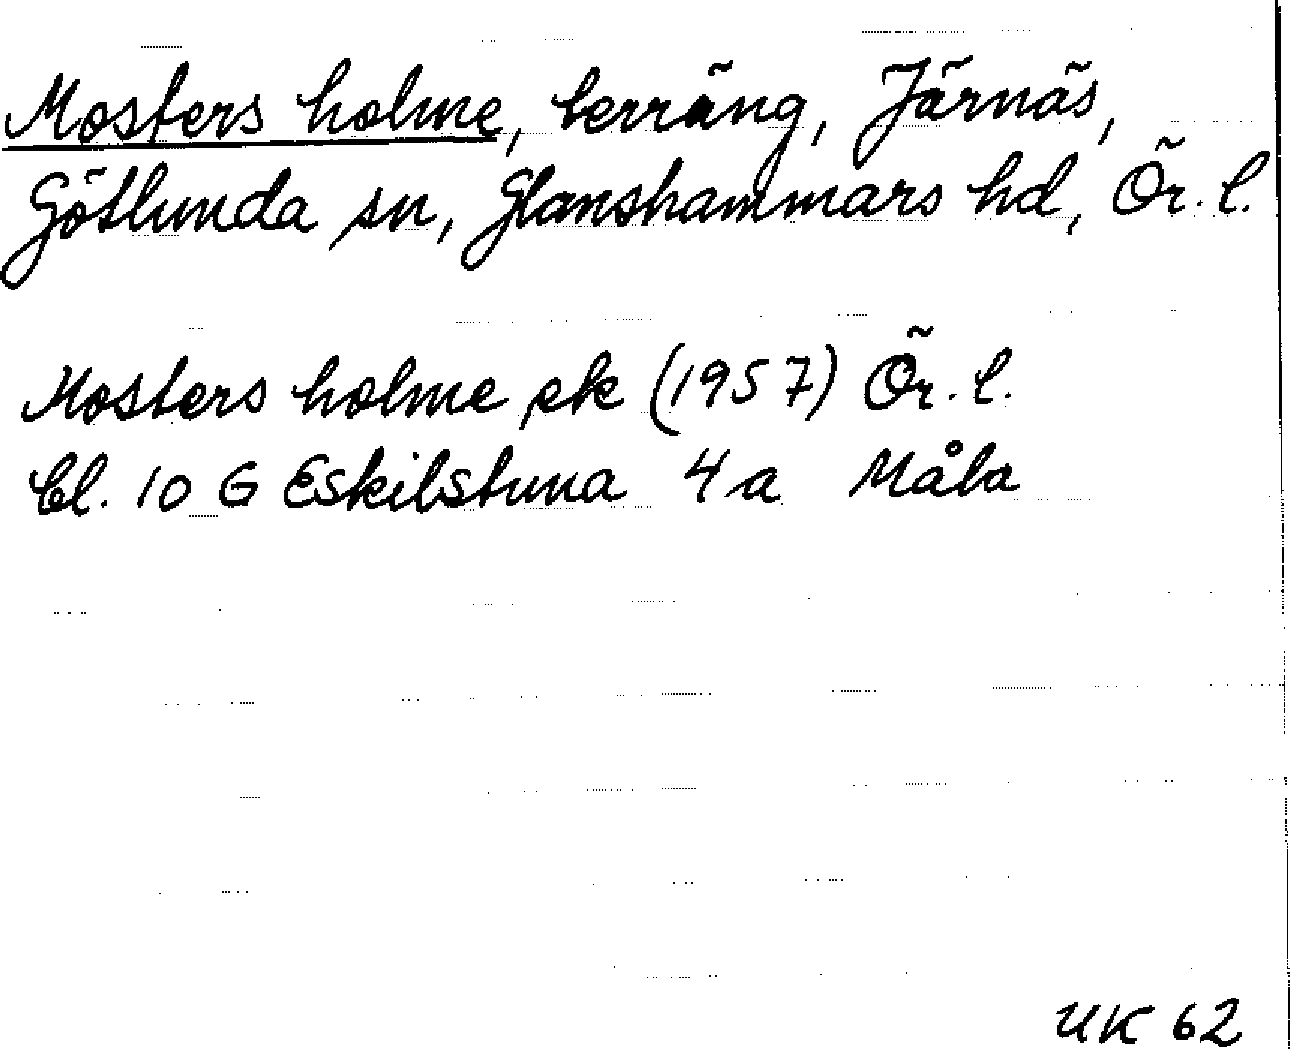 Mosters holme, terräng, Järnäs,
Götlunda sn, Glanshammars hd, Ör. l.
Mosters holme ek (1957) Ör. l.
bl. 10 G Eskilstuna 4 a Måla
UK 62